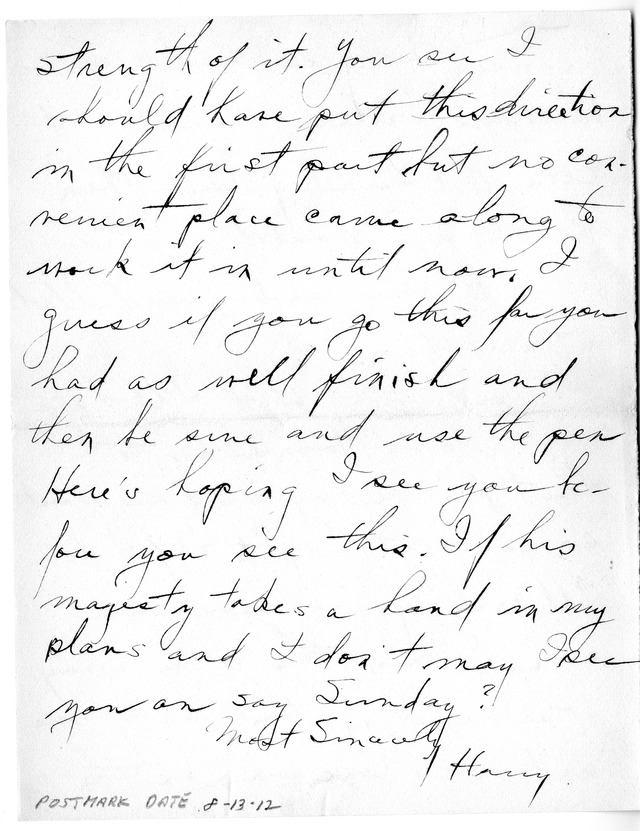 strength of it. You see I
should have put this direction
in the first part but no con-
venient place came along to
work it in until now. I
guess if you go this far you
had as well finish and
then be sure and use the pen
Here's hoping I see you be-
fore you see this. If his
majesty takes a hand in my
plans and I don't may I see
you on say Sunday?
Most Sincerely
Harry
POSTMARK DATE 8-13-12